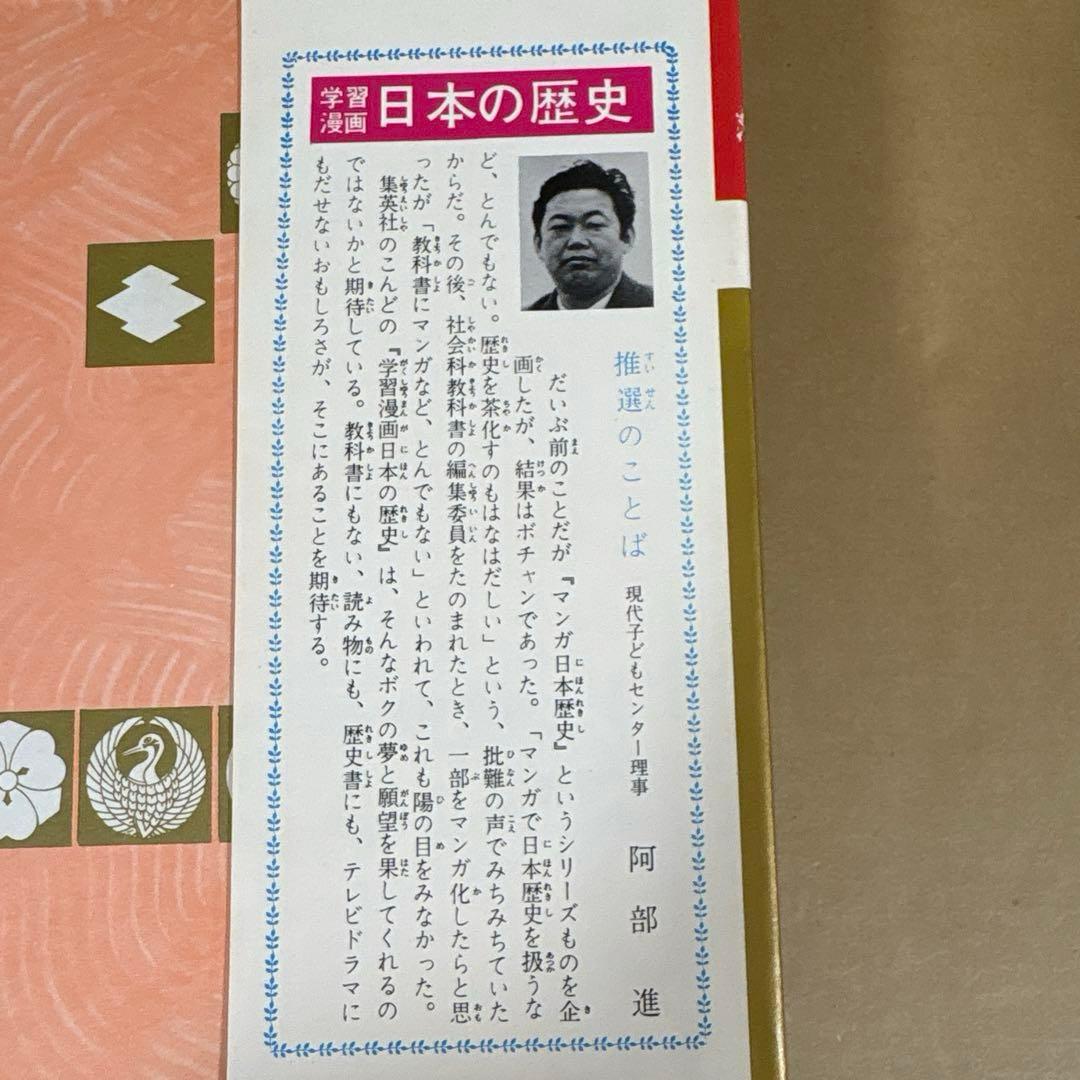 学習
漫画
日本の歴史
推選のことば
現代子どもセンター理事 阿部進
だいぶ前のことだが『マンガ日本歴史』というシリーズものを企
画したが、結果はボチャンであった。「マンガで日本歴史を扱うな
ど、とんでもない。歴史を茶化すのもはなはだしい」という、批難の声でみちみちていた
からだ。その後、社会科教科書の編集委員をたのまれたとき、一部をマンガ化したらと思
ったが「教科書にマンガなど、とんでもない」といわれて、これも陽の目をみなかった。
集英社のこんどの『学習漫画日本の歴史』は、そんなボクの夢と願望を果してくれるの
ではないかと期待している。教科書にもない、読み物にも、歴史書にも、テレビドラマに
もだせないおもしろさが、そこにあることを期待する。